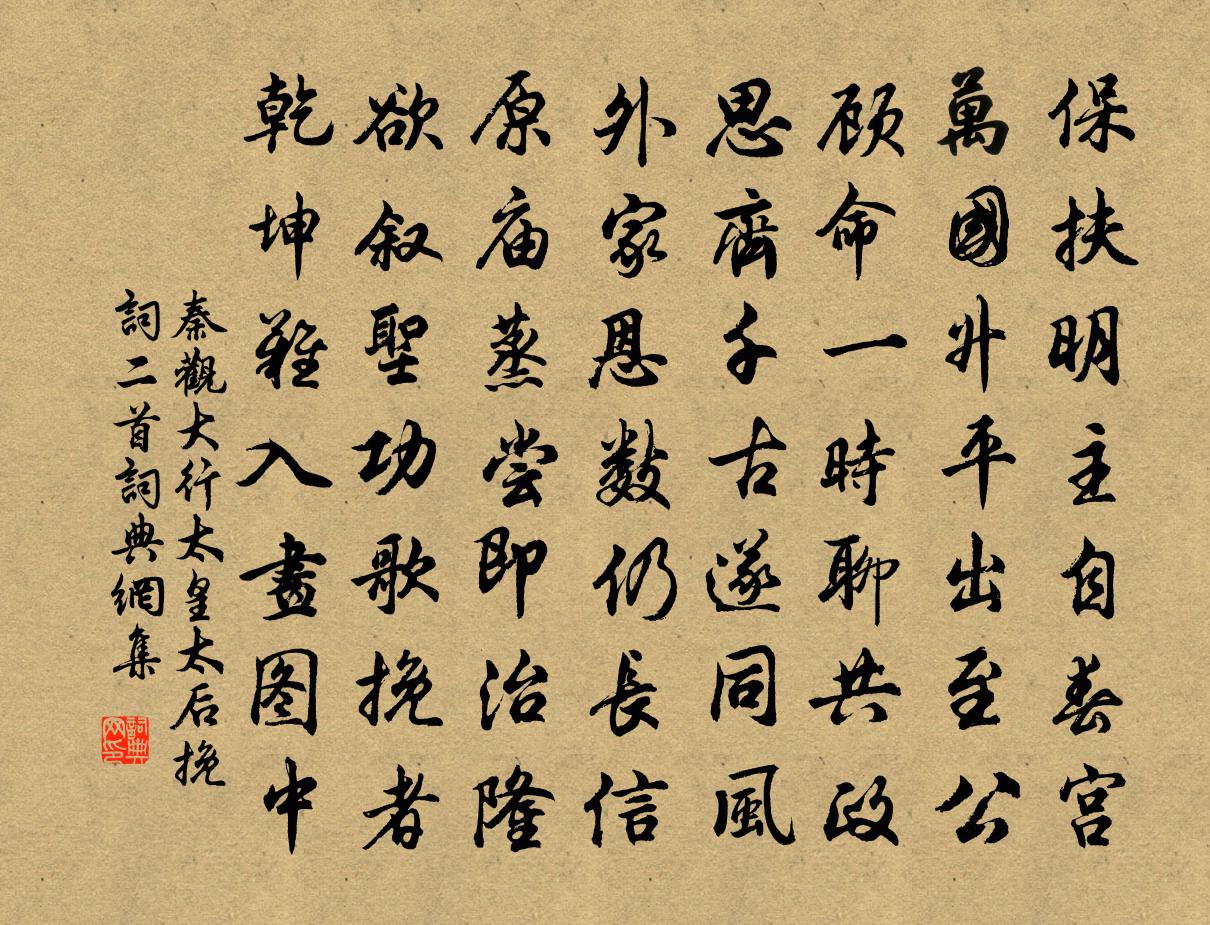 保扶明主自春宫
萬國升平出至公
顾命一時聊共政
思齊千古遂同風
外家恩数仍長信
原庙蒸尝即治隆
欲叙聖功歌挽者
乾坤難入畫图中
秦觀大行太皇太后挽
詞二首詞典網集
詞典网印